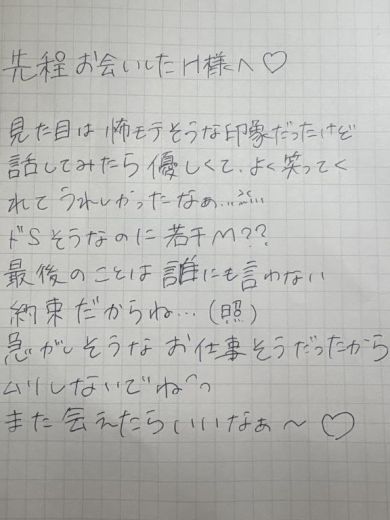 先程お会いしたH様へ♡
見た目は怖モテそうな印象だったけど
話してみたら優しくて、よく笑ってく
れてうれしかったなぁ...
ドSそうなのに若干M??
最後のことは誰にも言わない
約束だからね…(照)
急がしそうなお仕事そうだったから
ムリしないでね^^
また会えたらいいなぁ〜♡